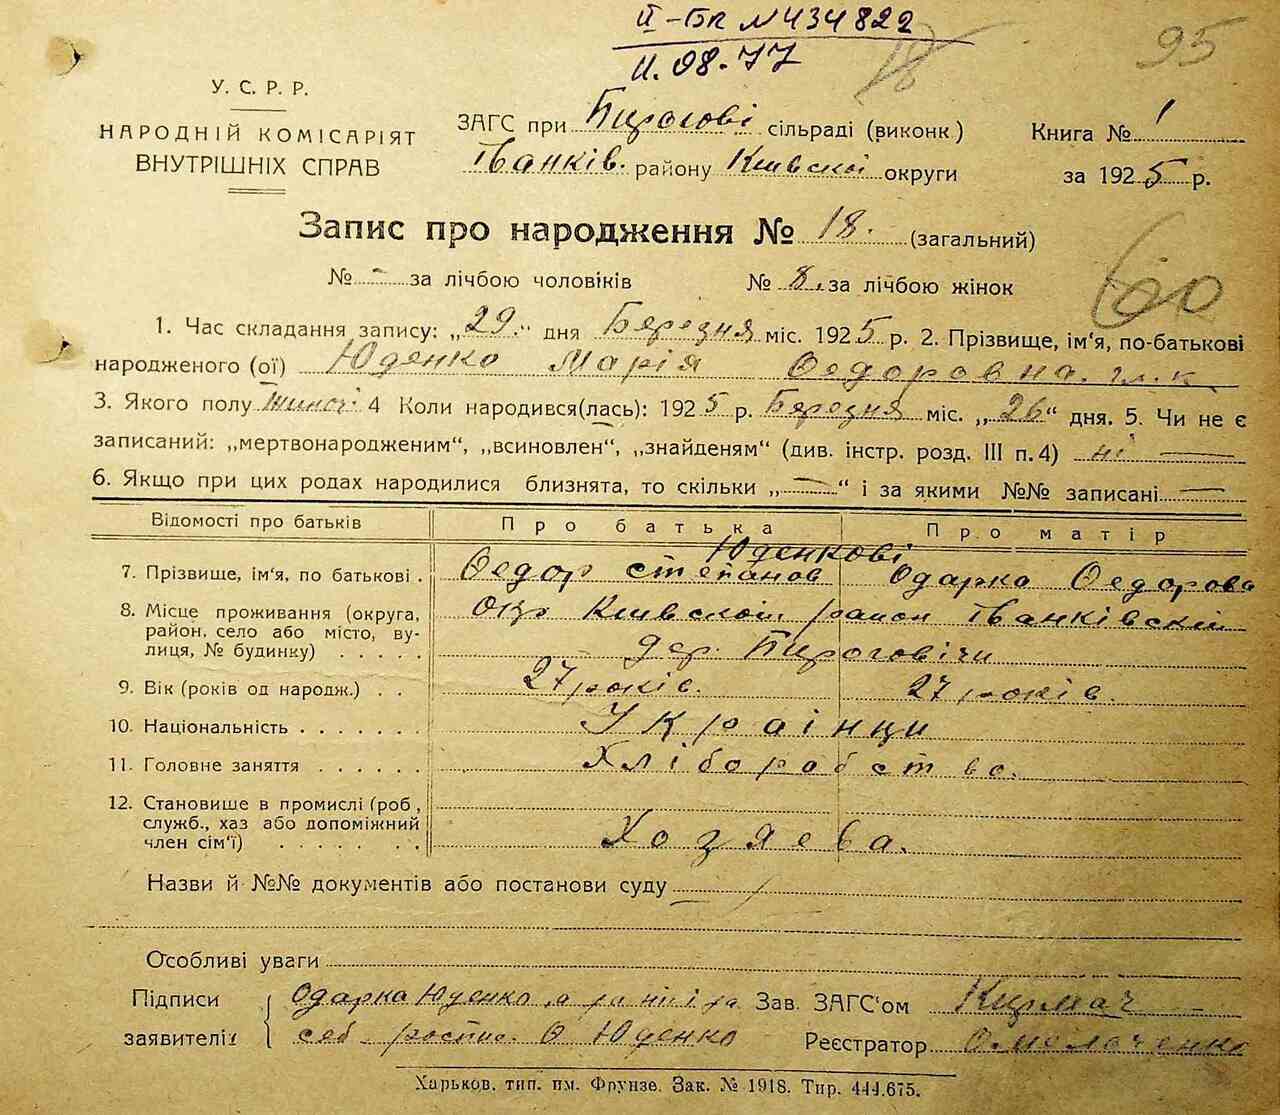 ІІ-БК №434822
11.08.77
18
95
У. С. Р. Р.
НАРОДНІЙ КОМІСАРІЯТ
ВНУТРІШНІХ СПРАВ
ЗАГС при Пирогові сільраді (виконк)
Іванків. району Київскої округи
Книга № 1
за 1925 р.
Запис про народження № 18. (загальний)
№ - за лічбою чоловіків № 8. за лічбою жінок
60
1. Час складання запису: „29.“ дня Березня міс. 1925 р. 2. Прізвище, ім'я, по-батькові
народженого (ої) Юденко Марія Федоровна.
3. Якого полу жіноч. 4 Коли народився(лась): 1925 р. Березня міс. „26“ дня. 5. Чи не є
записаний: „мертвонародженим“, „всиновлен“, „знайденям“ (див. інстр. розд. III п. 4) ні —
6. Якщо при цих родах народилися близнята, то скільки „—“ і за якими №№ записані —
Відомості про батьків Про батька Про матір
Юденкові
7. Прізвище, ім'я, по батькові . Федор Степанов Одарка Федорова
8. Місце проживання (округа, Окр Київской район Іванківскій
район, село або місто, ву-
лиця, № будинку) . . . . . дер. Пироговичи
9. Вік (років од народж.) . . 27 років. 27 років.
10. Національність . . . . . . . Українци
11. Головне заняття . . . . . . Хліборобство.
12. Становище в промислі (роб,
служб., хаз або допоміжний
член сім'ї) . . . . . . . . Хозяева.
Назви й №№ документів або постанови суду
Особливі уваги
Підписи Одарка Юденко Зав. ЗАГС'ом Кирмач
заявителіх себ роспис. О Юденко Реєстратор Омельченко
Харьков, тип. им. Фрунзе. Зак. № 1918. Тир. 444.675.